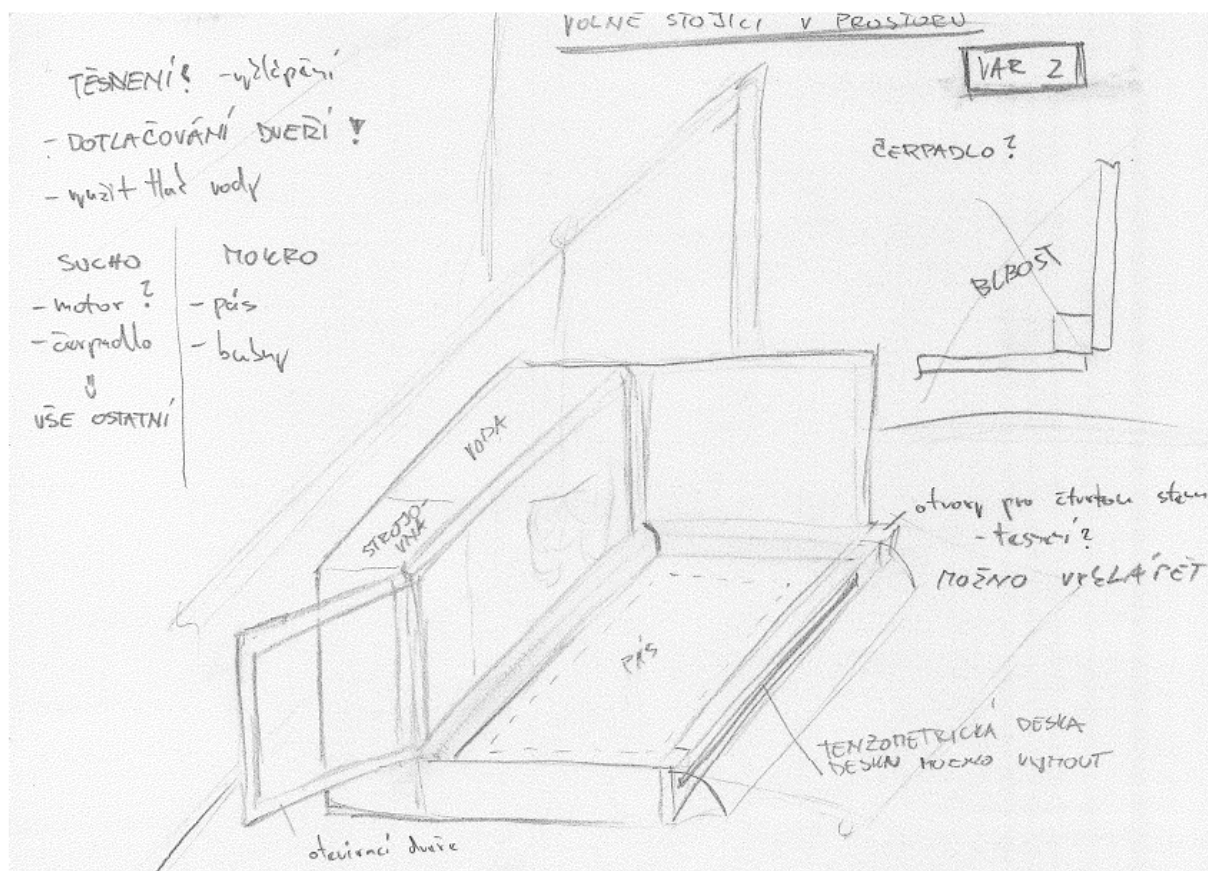 VOLNĚ STOJÍCÍ V PROSTORU
VAR 2
TĚSNENÍ! - vyšlápění
- DOTLAČOVÁNÍ DVEŘÍ!
- využít tlak vody
SUCHO
- motor?
- čerpadlo
⇓
VŠE OSTATNÍ
MOKRO
- pás
- bubny
ČERPADLO?
BLBOST
VODA
STROJO-
VNA
PÁS
otvory pro čtvrtou
- tesnění?
MOŽNO
TENZOMETRICKÁ DESKA
DESKU MOŽNO VYJMOUT
otevírací dveře